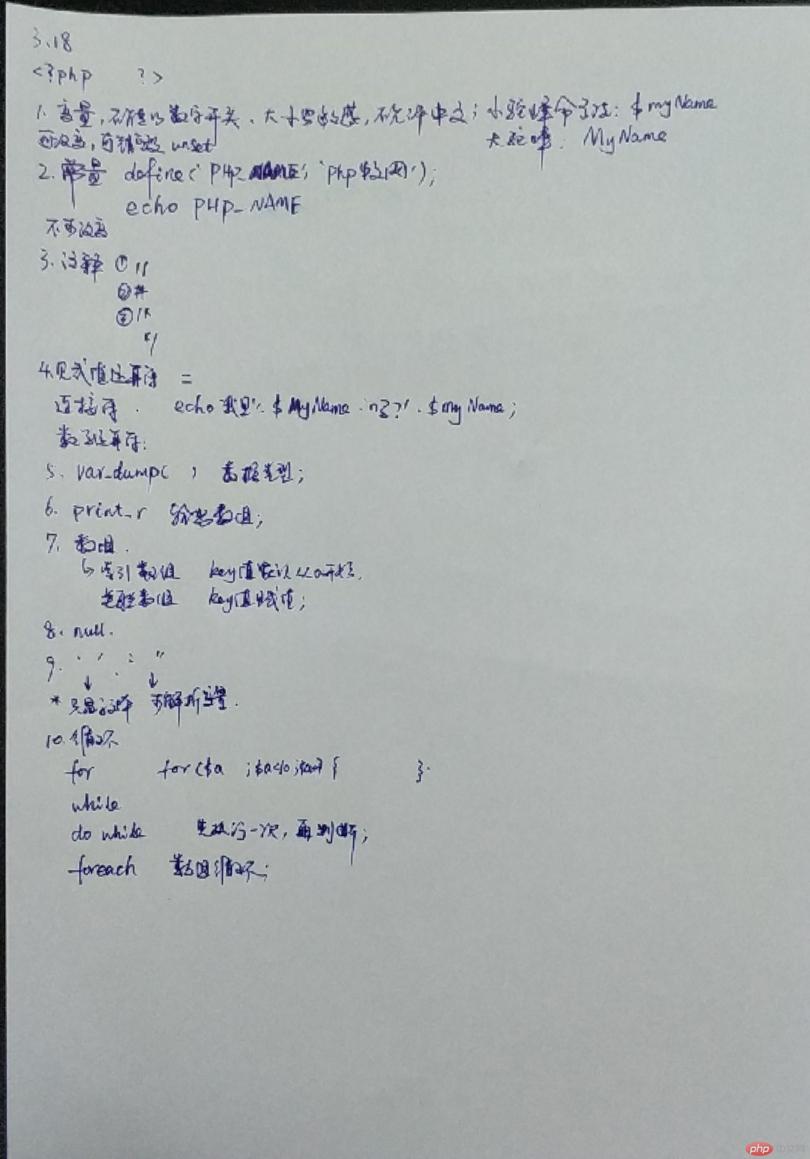 3.18
<?php ?>
1. 变量,不能以数字开头、大小写敏感,不允许中文;小驼峰命名法:$myName
可改变,可销毁 unset 大驼峰:MyName
2. 常量 define('PHP_NAME','php中文网');
echo PHP_NAME
不可改变
3. 注释 ① //
② #
③ /*
*/
4. 赋值运算符 =
连接符 . echo '我是'. $MyName . $myName;
数学运算符:
5. var_dump( ) 数据类型;
6. print_r 输出数组;
7. 数组.
↳ 索引数组 key值默认从0开始.
关联数组 key值赋值;
8. null.
9. ' ' : "
↓ ↓
* 只是字符 可解析变量.
10. 循环
for for($a ;$a<10;$a++){ }
while
do while 先执行一次,再判断;
foreach 数组循环;
php